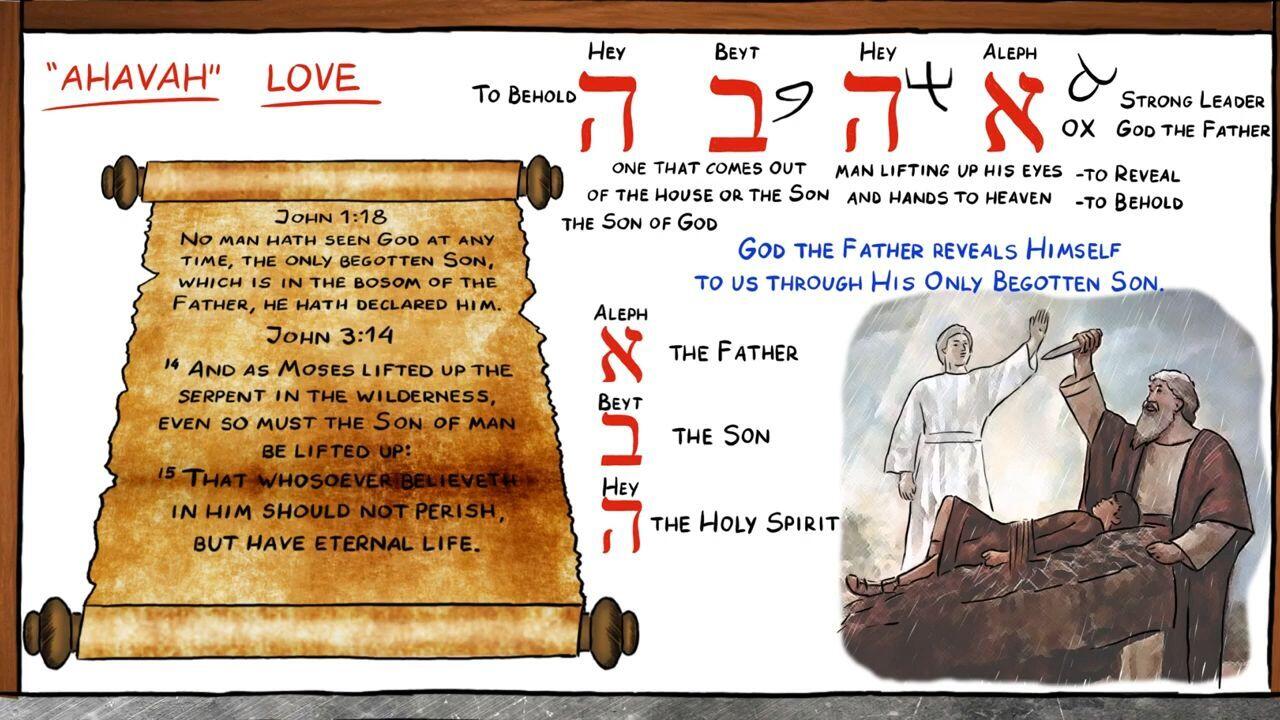 "AHAVAH" LOVE
HEY BEYT HEY ALEPH
TO BEHOLD ה ב ה א OX STRONG LEADER
GOD THE FATHER
ONE THAT COMES OUT
OF THE HOUSE OR THE SON
THE SON OF GOD
MAN LIFTING UP HIS EYES
AND HANDS TO HEAVEN
-TO REVEAL
-TO BEHOLD
GOD THE FATHER REVEALS HIMSELF
TO US THROUGH HIS ONLY BEGOTTEN SON.
JOHN 1:18
NO MAN HATH SEEN GOD AT ANY
TIME, THE ONLY BEGOTTEN SON,
WHICH IS IN THE BOSOM OF THE
FATHER, HE HATH DECLARED HIM.
JOHN 3:14
14 AND AS MOSES LIFTED UP THE
SERPENT IN THE WILDERNESS,
EVEN SO MUST THE SON OF MAN
BE LIFTED UP:
15 THAT WHOSOEVER BELIEVETH
IN HIM SHOULD NOT PERISH,
BUT HAVE ETERNAL LIFE.
ALEPH
א THE FATHER
BEYT
ב THE SON
HEY
ה THE HOLY SPIRIT